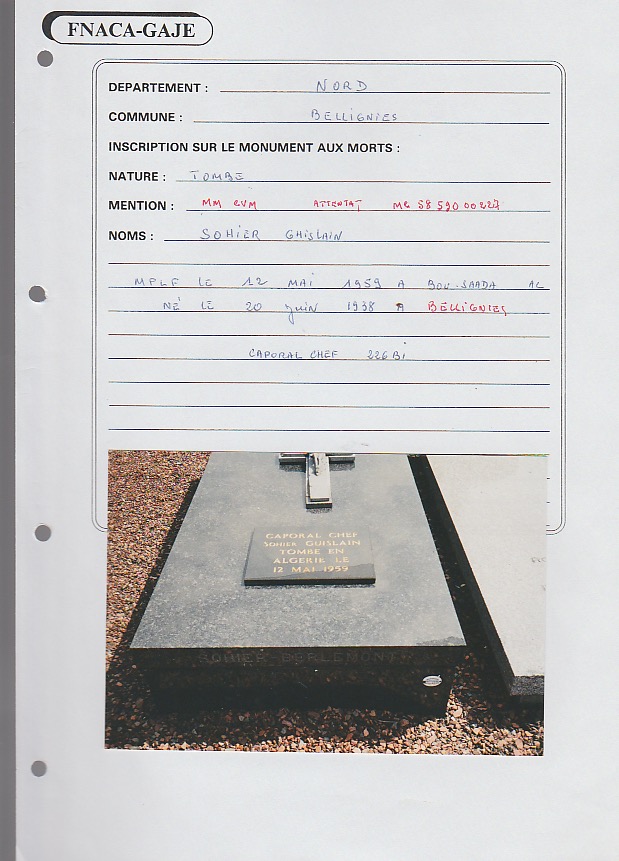 FNACA-GAJE
DEPARTEMENT : NORD
COMMUNE : BELLIGNIES
INSCRIPTION SUR LE MONUMENT AUX MORTS :
NATURE : TOMBE
MENTION : MM CVM ATTENTAT MG 58 590 00227
NOMS : SOHIER GHISLAIN
MPLF LE 12 MAI 1959 A BOU-SAADA AL
NÉ LE 20 Juin 1938 A BELLIGNIES
CAPORAL CHEF 226 BI
CAPORAL CHEF
SOHIER GUISLAIN
TOMBE EN
ALGERIE LE
12 MAI 1959
SOHIER-BERLEMONT